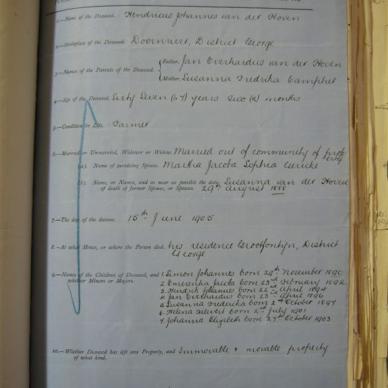 1.—Name of the Deceased. Hendricus Johannes van der Hoven
2.—Birthplace of the Deceased. Doornrivier, District George
3.—Names of the Parents of the Deceased.
Father, Jan Everhardus van der Hoven
Mother, Susanna Fredrika Campher
4.—Age of the Deceased, Sixty Seven (67) years Six (6) months
Farmer
6.—Married or Unmarried, Widower or Widow, Married out of community of
(a). Name of surviving Spouse, Martha Jacoba Sophia
(b). Name, or Names, and as near as possible the date Susanna van der Hoven
of death of former Spouse, or Spouses. 29th August
7.—The day of the decease. 15th June 1905
8.—At what House, or where the Person died, his residence Grootfontyn, District
George
9.—Names of the Children of Deceased, and whether Minors or Majors.
1. Simon Johannes born November
2. Jacoba born February
3. Hendrik Johannes born April
4. Jan Everhardus born April
5. Susanna Frederika born October
6. Helena born July 1901
7. Johanna Elizabeth born October 1903
10.—Whether Deceased has left any Property, and of what kind. Immovable + movable property